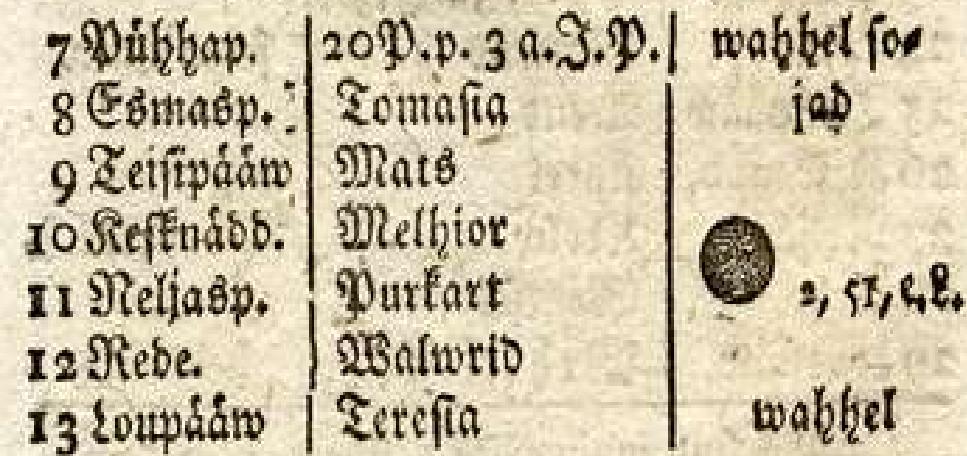 7 Pühhap. 20 P. p. 3 a. J. P. wahhel so-
8 Esmasp. Tomasia jad
9 Teisipääw Mats
10 Kesknädd. Melhior
11 Neljasp. Purkart 2, 51, e. k.
12 Rede. Walwrid
13 Loupääw Teresia wahhel